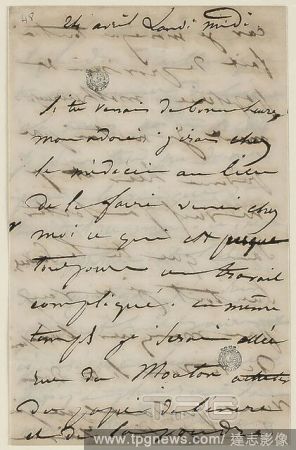 48
24 avril Lundi midi.
Si tu venais de bonne heure,
mon adoré, j'irais chez
le médecin au lieu
de le faire venir chez
moi ce qui est presque
toujours un travail
compliqué. En même
temps je serai allée
rue du Mouton acheter
du papier
et de la poudre
www.tpgnews.com/達志影像